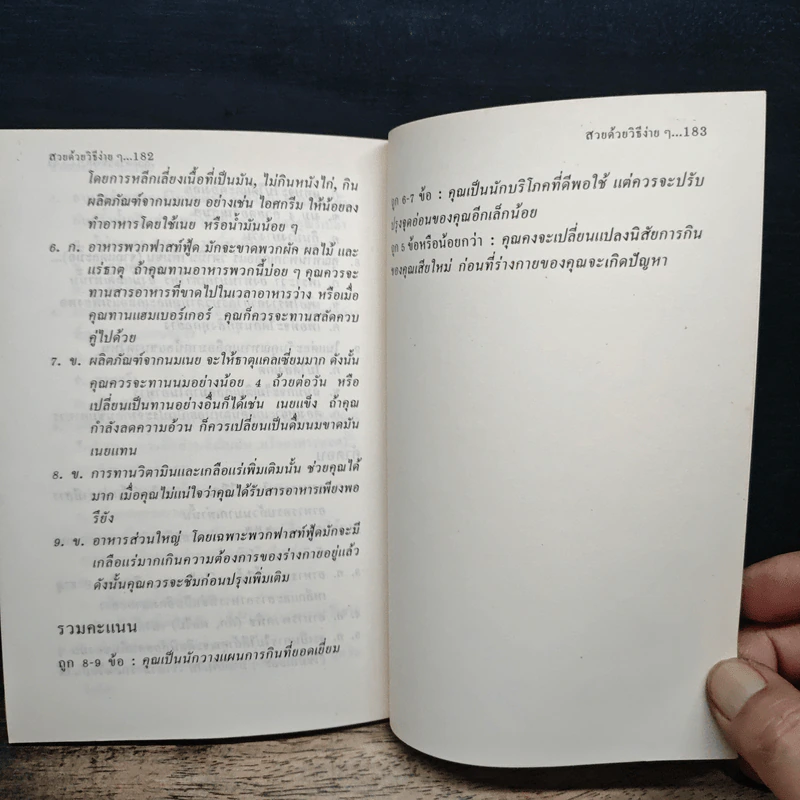 สวยด้วยวิธีง่าย ๆ...182
โดยการหลีกเลี่ยงเนื้อที่เป็นมัน, ไม่กินหนังไก่, กิน
ผลิตภัณฑ์จากนมเนย อย่างเช่น ไอศกรีม ให้น้อยลง
ทำอาหารโดยใช้เนย หรือน้ำมันน้อย ๆ
6. ก. อาหารพวกฟาสท์ฟู๊ด มักจะขาดพวกผัก ผลไม้ และ
แร่ธาตุ ถ้าคุณทานอาหารพวกนี้บ่อย ๆ คุณควรจะ
ทานสารอาหารที่ขาดไปในเวลาอาหารว่าง หรือเมื่อ
คุณทานแฮมเบอร์เกอร์ คุณก็ควรจะทานสลัดควบ
คู่ไปด้วย
7. ข. ผลิตภัณฑ์จากนมเนย จะให้ธาตุแคลเซี่ยมมาก ดังนั้น
คุณควรจะทานนมอย่างน้อย 4 ถ้วยต่อวัน หรือ
เปลี่ยนเป็นทานอย่างอื่นก็ได้เช่น เนยแข็ง ถ้าคุณ
กำลังลดความอ้วน ก็ควรเปลี่ยนเป็นดื่มนมขาดมัน
เนยแทน
8. ข. การทานวิตามินและเกลือแร่เพิ่มเติมนั้น ช่วยคุณได้
มาก เมื่อคุณไม่แน่ใจว่าคุณได้รับสารอาหารเพียงพอ
รึยัง
9. ข. อาหารส่วนใหญ่ โดยเฉพาะพวกฟาสท์ฟู๊ดมักจะมี
เกลือแร่มากเกินความต้องการของร่างกายอยู่แล้ว
ดังนั้นคุณควรจะชิมก่อนปรุงเพิ่มเติม
รวมคะแนน
ถูก 8-9 ข้อ : คุณเป็นนักวางแผนการกินที่ยอดเยี่ยม
สวยด้วยวิธีง่าย ๆ...183
ถูก 6-7 ข้อ : คุณเป็นนักบริโภคที่ดีพอใช้ แต่ควรจะปรับ
ปรุงจุดอ่อนของคุณอีกเล็กน้อย
ถูก 5 ข้อหรือน้อยกว่า : คุณคงจะเปลี่ยนแปลงนิสัยการกิน
ของคุณเสียใหม่ ก่อนที่ร่างกายของคุณจะเกิดปัญหา